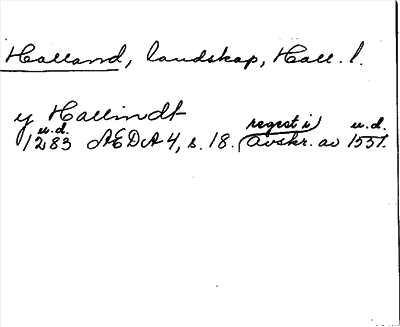 Halland, landskap, Hall. l.
y Hallindt
u.d. regest i u.d.
1283 AEDA 4, s. 18. (Avskr. av 1551.